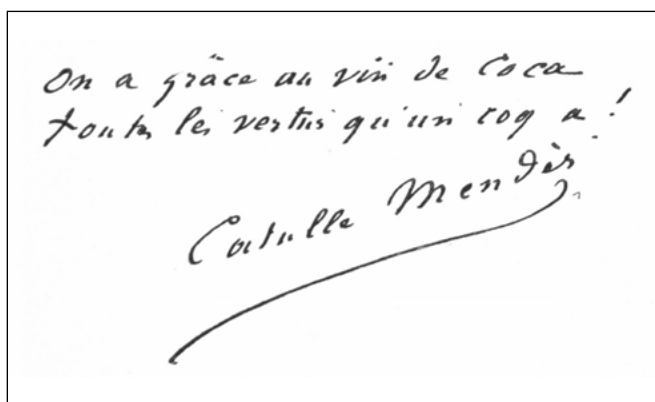 On a grâce au vin de Coca
toutes les vertus qu'un coq a !
Catulle Mendès